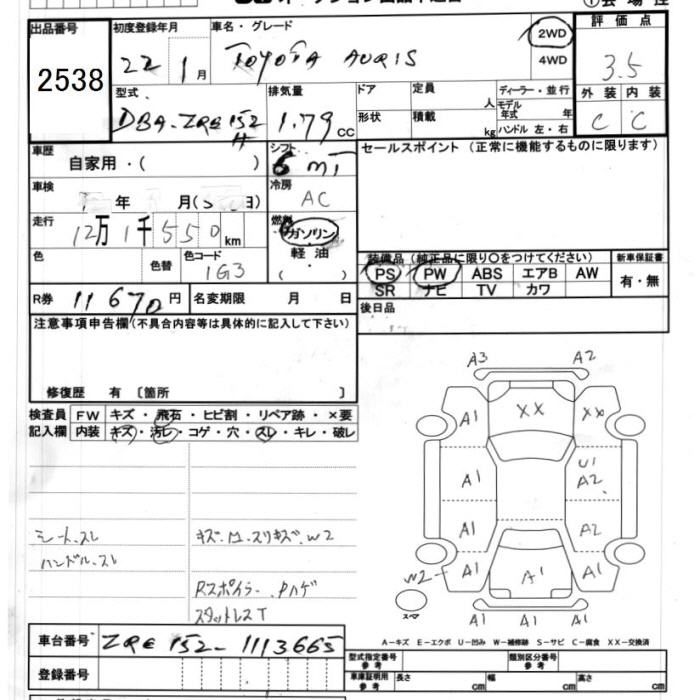 出品番号 初度登録年月 車名・グレード 評価点
2538 22年 1月 TOYOTA AURIS 2WD 4WD 3.5
外装 内装
C C
型式 排気量 ドア 定員 人 ディーラー・並行
DBA-ZRE152H 1.79 CC 形状 積載 kg モデル年式 年 ハンドル 左・右
車歴 自家用・( ) シフト 6 MT セールスポイント (正常に機能するものに限ります)
車検 年 月( 日) 冷房 AC
走行 12万1千550km 燃料 ガソリン 軽油 ( )
色 色替 色コード 1G3
装備品 (純正品に限り○をつけてください) 新車保証書
PS PW ABS エアB AW 有・無
SR ナビ TV カワ
R券 11670円 名変期限 月 日 後日品
注意事項申告欄(不具合内容等は具体的に記入して下さい)
修復歴 有 〔箇所 〕
検査員 FW キズ・飛石・ヒビ割・リペア跡・×要
記入欄 内装 キズ・汚レ・コゲ・穴・スレ・キレ・破レ
A3 A2
A1 XX XX
A1 U1 A2
A1 A2
W2 A1 A1 A1
スペア A1 A1 A1
シート、スレ キズ、凹、スリキズ、W2
ハンドル、スレ
Rスポイラー、Pハゲ
スタットレスT
A-キズ E-エクボ U-凹み W-補修跡 S-サビ C-腐食 XX-交換済
車台番号 ZRE152-1113665
登録番号
型式指定番号 参考 類別区分番号 参考
車庫証明用 参考 長さ cm 幅 cm 高さ cm